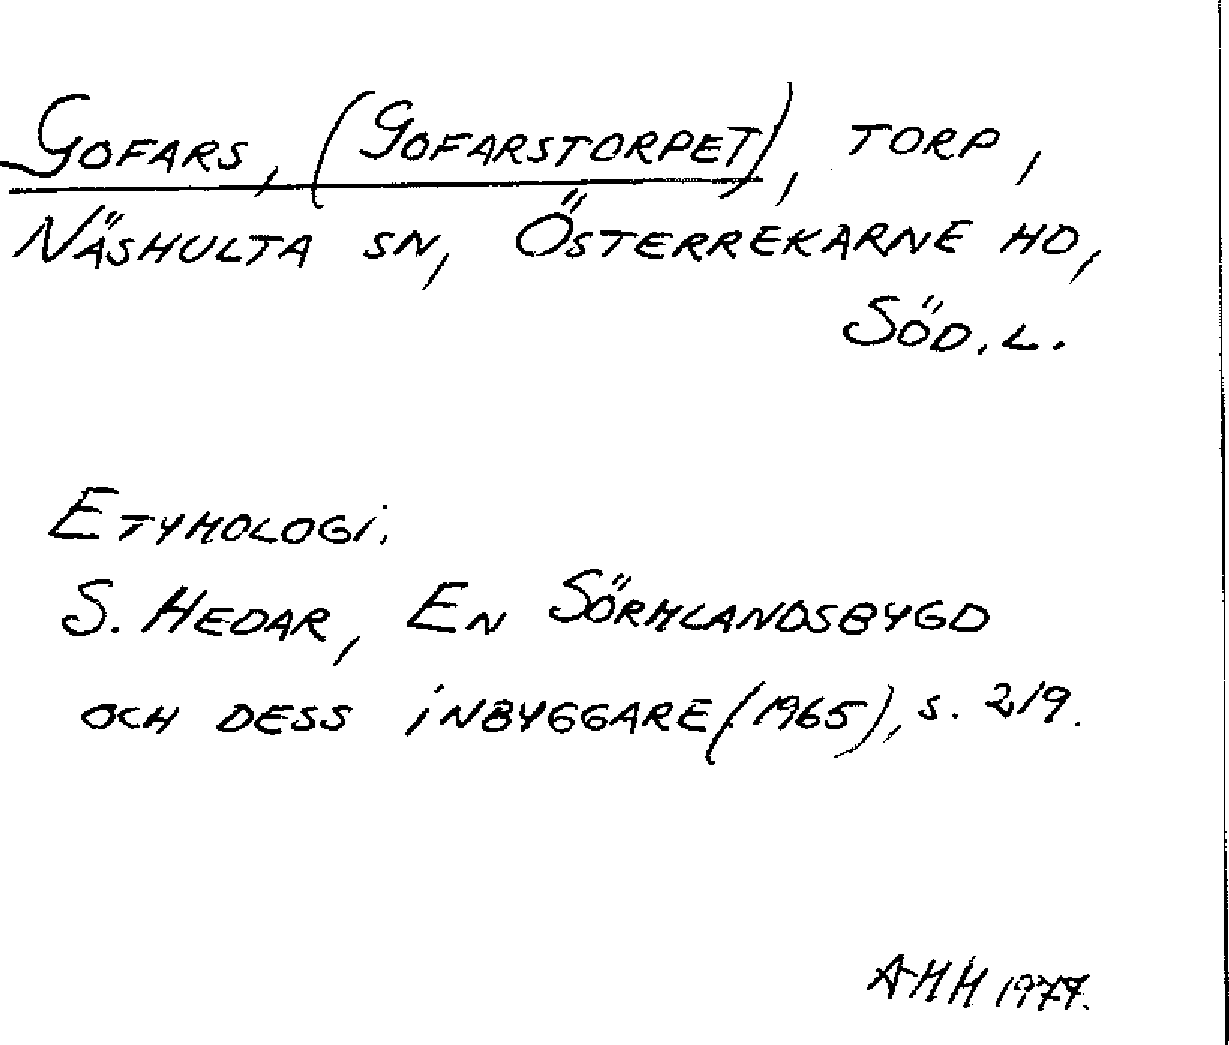 GOFARS, (GOFARSTORPET), TORP,
NÄSHULTA SN, ÖSTERREKARNE HD,
SÖD. L.
ETYMOLOGI.
S. HEDAR, EN SÖRMLANDSBYGD
OCH DESS INBYGGARE (1965), S. 219.
AMH 1977.